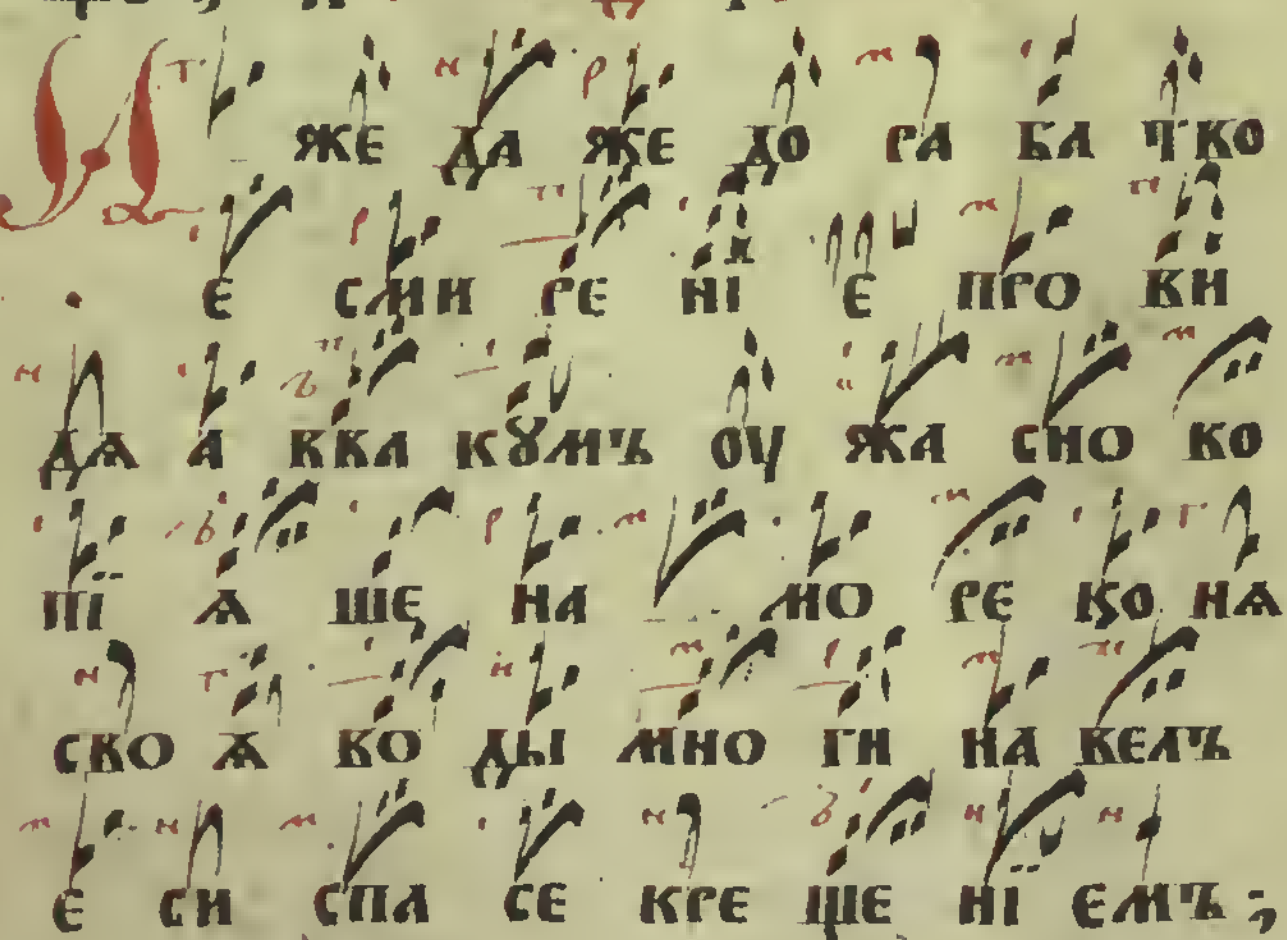 И ЖЕ ДА ЖЕ ДО РА БА ЧЬКО
Е СМИ РЕ НІ Е ПРО ВИ
ДѦ А ВВА КꙊМЪ ОУ ЖА СНО ВО
ПІ Ѧ ШЕ НА МО РЕ ВО НѦ
СКО Ѧ ВО ДЫ МНО ГИ НА ВЕЛЪ
Е СИ СПА СЕ КРЕ ЩЕ НІ ЕМЪ ;